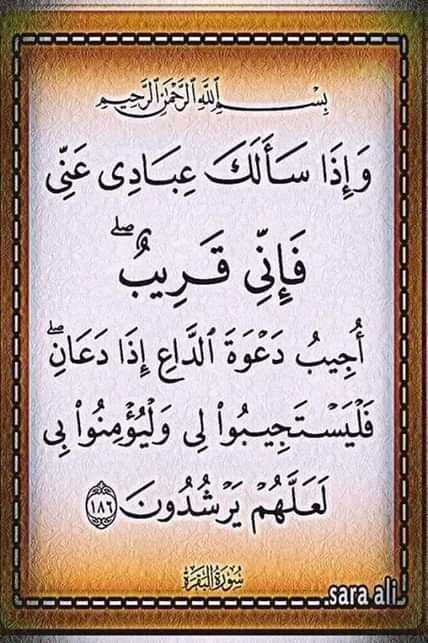 بِسْمِ ٱللَّهِ ٱلرَّحْمَٰنِ ٱلرَّحِيمِ
وَإِذَا سَأَلَكَ عِبَادِى عَنِّى
فَإِنِّى قَرِيبٌ ۖ
أُجِيبُ دَعْوَةَ ٱلدَّاعِ إِذَا دَعَانِ ۖ
فَلْيَسْتَجِيبُوا۟ لِى وَلْيُؤْمِنُوا۟ بِى
لَعَلَّهُمْ يَرْشُدُونَ ١٨٦
سُورَةُ الْبَقَرَةِ
sara ali